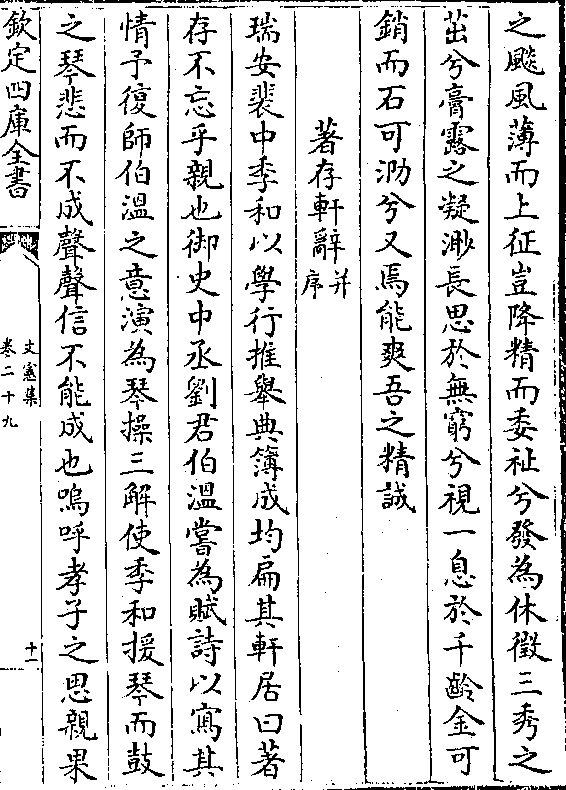 之飈風薄而上征豈降精而委祉兮發為休徵三秀之
茁兮膏露之凝渺長思於無窮兮視一息於千齡金可
銷而石可泐兮又焉能爽吾之精誠
著存軒辭并序
瑞安裴中季和以學行推舉典簿成均扁其軒居曰著
存不忘乎親也御史中丞劉君伯溫嘗為賦詩以寫其
情予復師伯溫之意演為琴操三解使季和援琴而鼓
之琴悲而不成聲聲信不能成也嗚呼孝子之思親果
欽定四庫全書
文憲集
卷二十九
十一